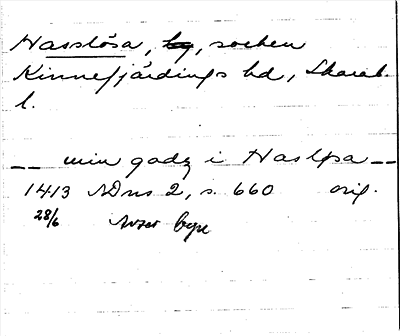 Hasslösa, by, socken
Kinnefjärdings hd, Skarab.
l.
__ min gadz i Hasløsa __
1413 SDns 2, s. 660 orig.
28/6